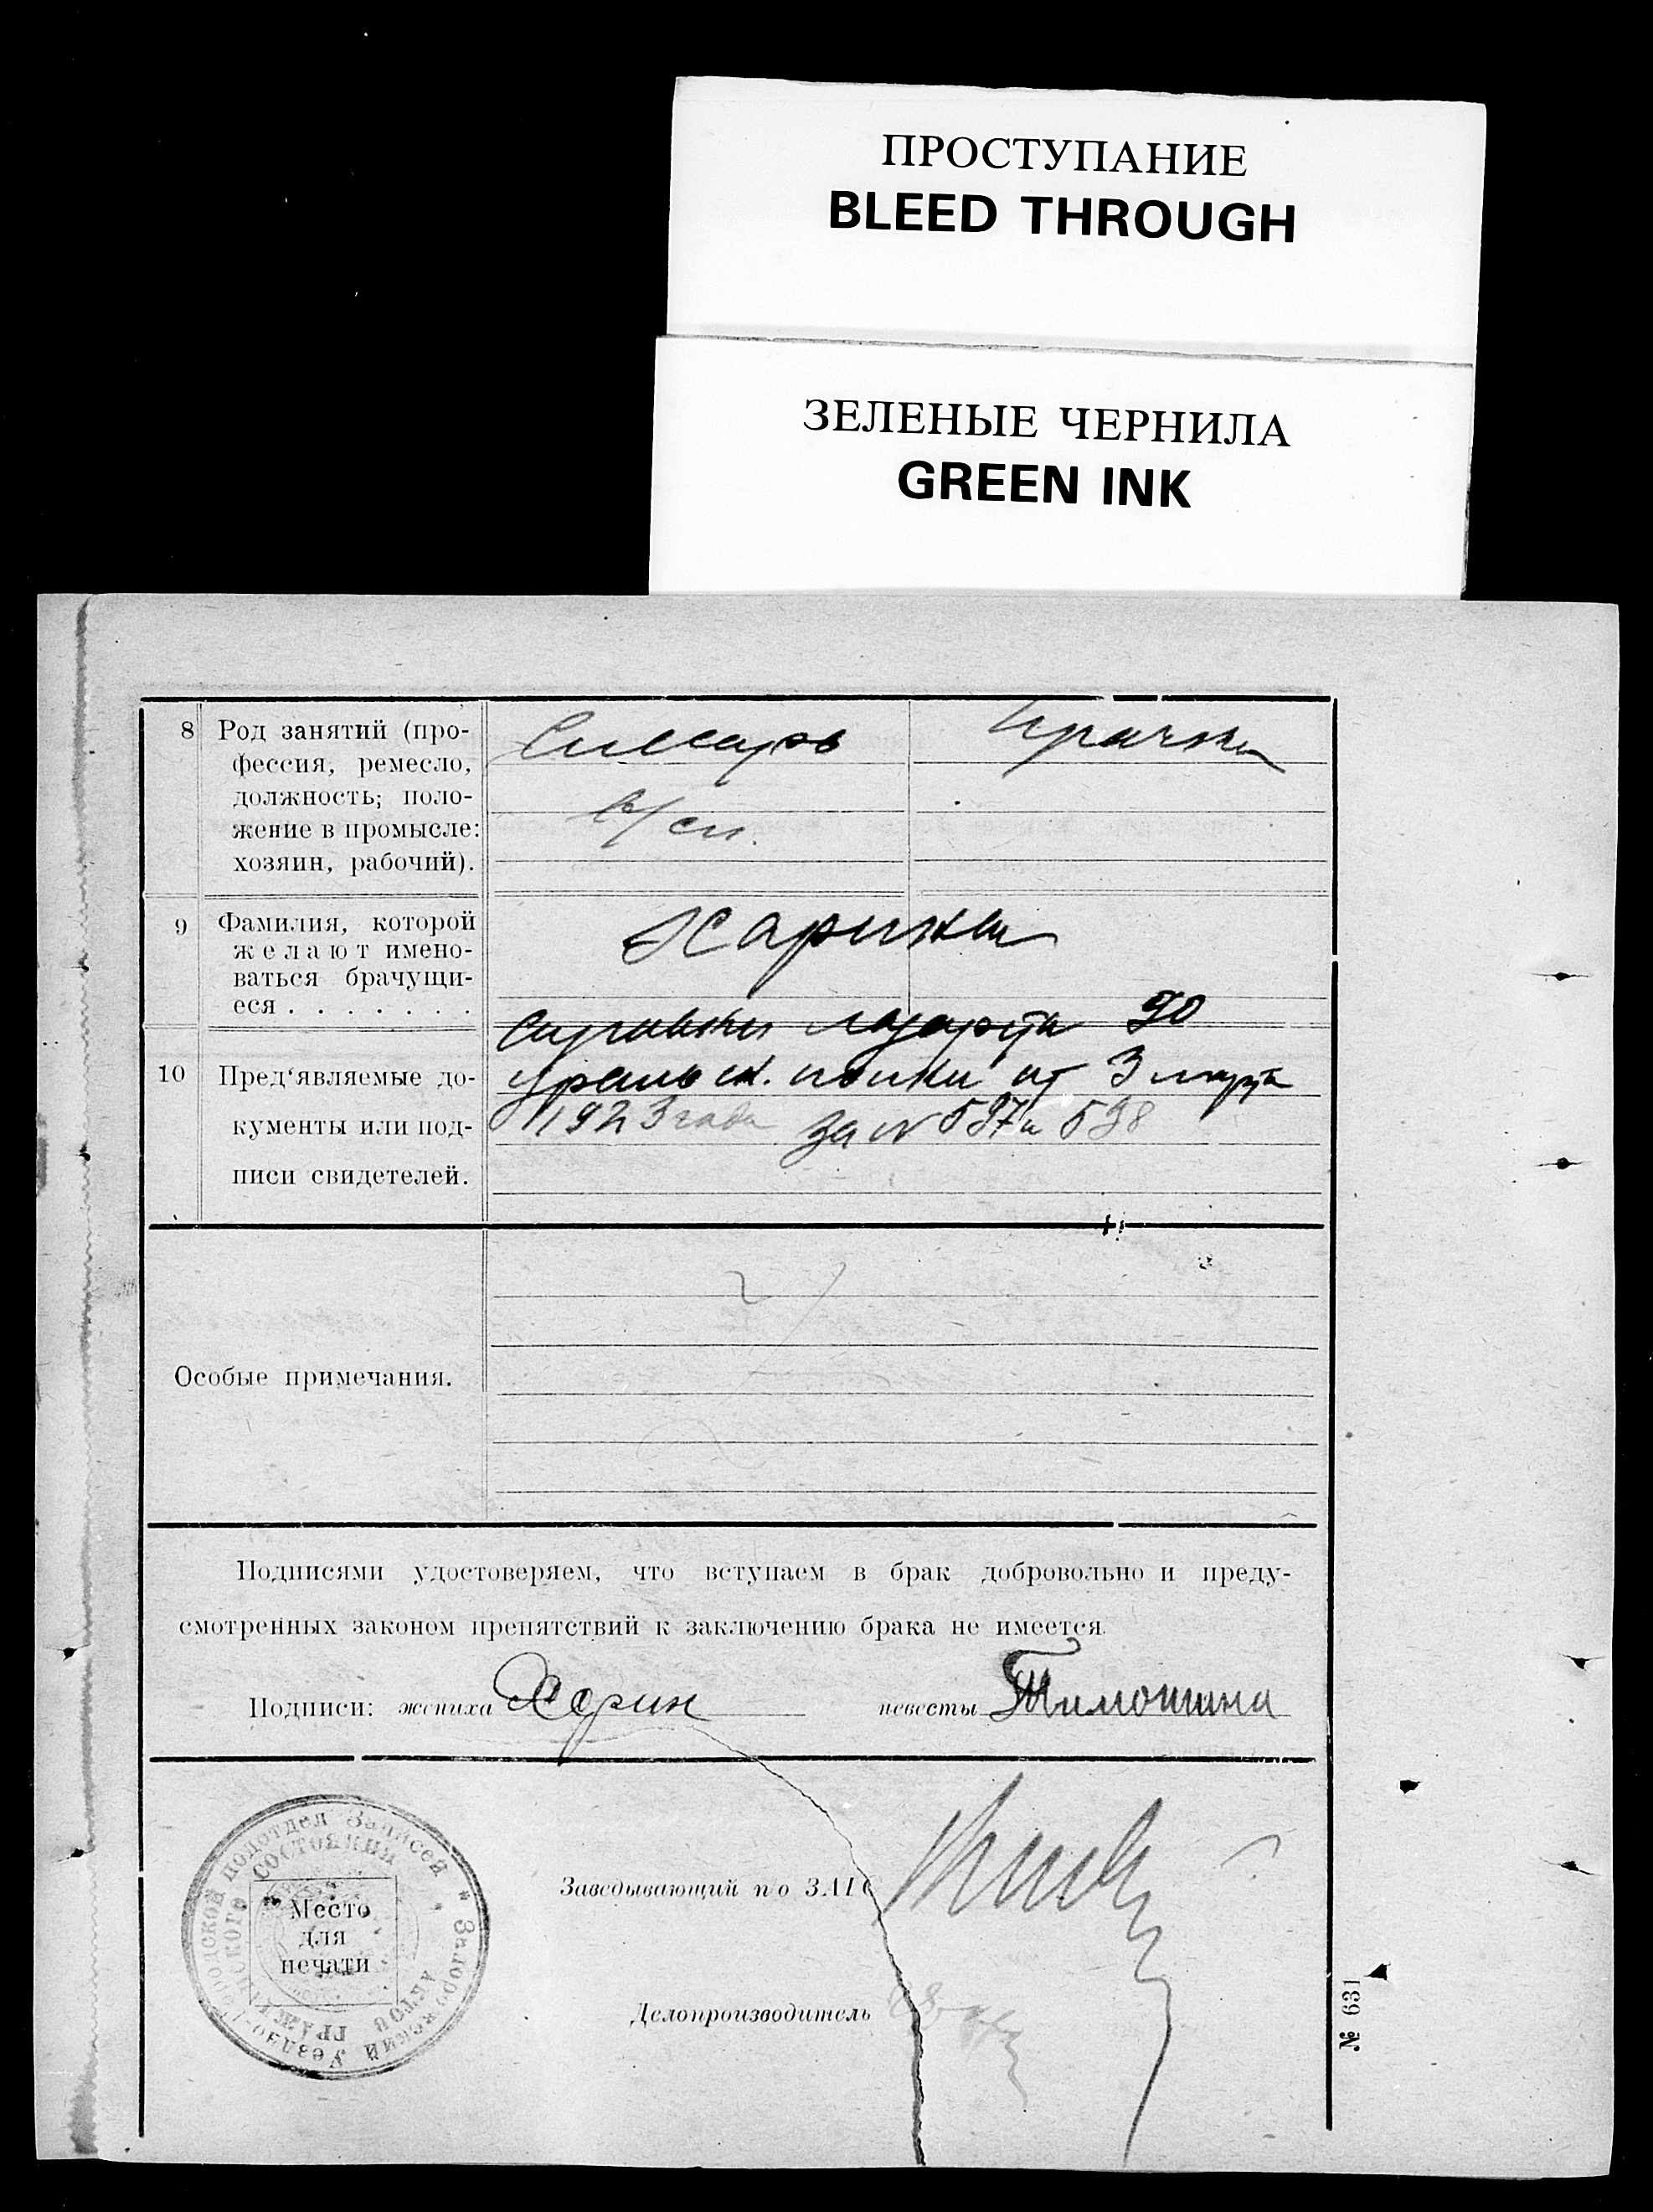 ПРОСТУПАНИЕ
BLEED THROUGH
ЗЕЛЕНЫЕ ЧЕРНИЛА
GREEN INK
8 Род занятий (про-
фессия, ремесло,
должность; поло-
жение в промысле:
хозяин, рабочий).
Слесарь
в/сл.
Прачка
9 Фамилия, которой
желают имено-
ваться брачущи-
еся . . . . . . .
Харины
10 Пред‘являемые до-
кументы или под-
писи свидетелей.
Справки лазарета 90
Уральск. полка от 3 марта
1923 года за № 597 и 598
Особые примечания.
Подписями удостоверяем, что вступаем в брак добровольно и преду-
смотренных законом препятствий к заключению брака не имеется.
Подписи: жениха Харин невесты Тимошина
Городской подотдел Записей * Запорожский Уезд
состояний
гражд
Место
для
печати
Заведывающий по ЗАГС
Делопроизводитель
№ 631